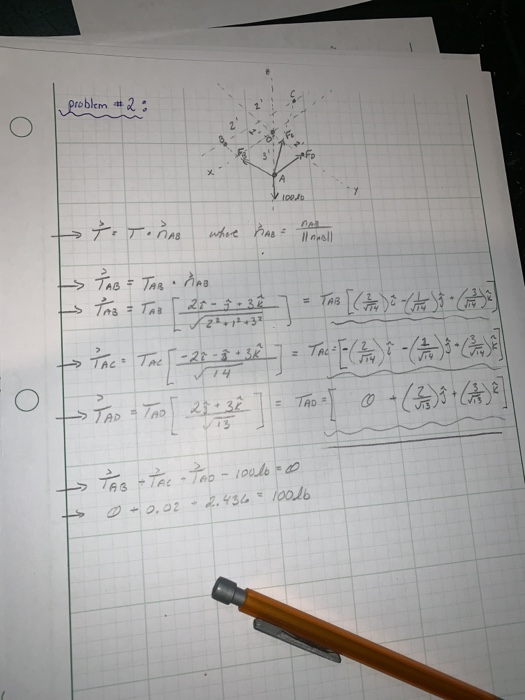 problem #2:
z
2'
C
2'
B
O
F_C
F_B
F_D
3'
x
A
y
100lb
→ T⃗ = T · n̂_AB where n̂_AB = n_AB / ||n_AB||
→ T⃗_AB = T_AB · n̂_AB
→ T⃗_AB = T_AB [ (2î - ĵ + 3k̂) / √(2² + 1² + 3²) ] = T_AB [(2/√14)î - (1/√14)ĵ + (3/√14)k̂]
→ T⃗_AC = T_AC [ (-2î - ĵ + 3k̂) / √14 ] = T_AC = [-(2/√14)î - (1/√14)ĵ + (3/√14)k̂]
→ T⃗_AD = T_AD [ (2ĵ + 3k̂) / √13 ] = T_AD = [ 0 + (2/√13)ĵ + (3/√13)k̂]
→ T⃗_AB + T⃗_AC + T⃗_AD - 100lb = 0
→ 0 + 0.02 - 2.436 = 100lb